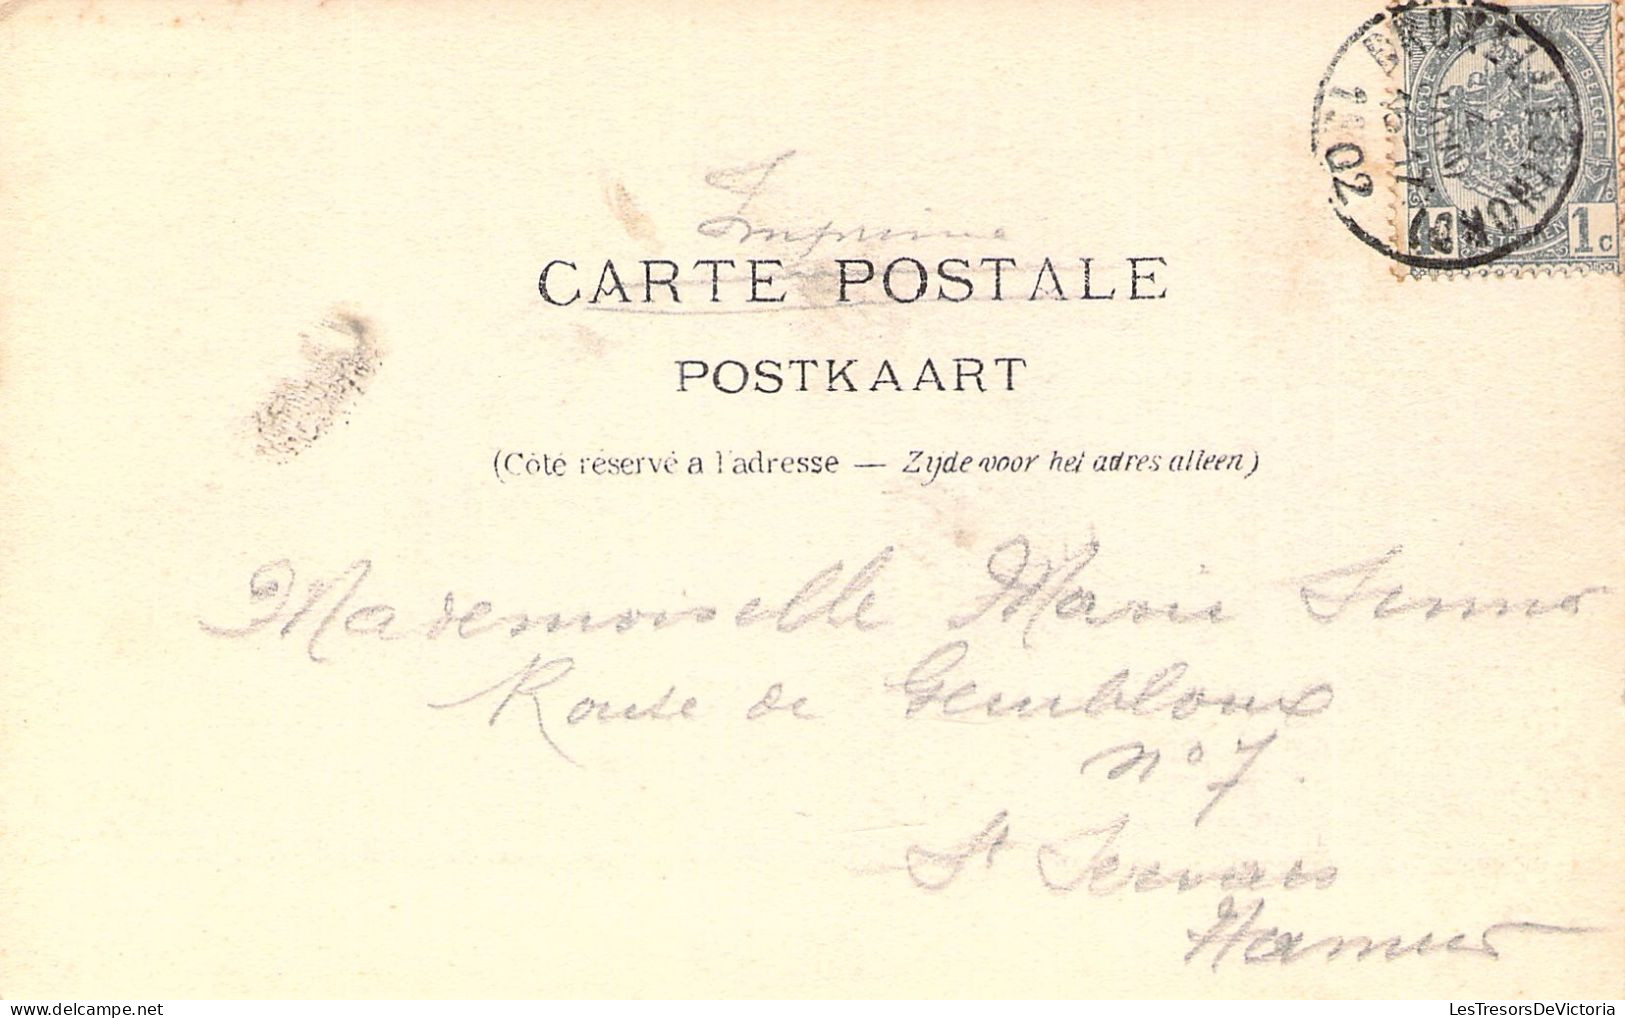 Imprimé
CARTE POSTALE
POSTKAART
(Côté réservé a l'adresse — Zijde voor het adres alleen)
Mademoiselle Marie
Route de Gembloux
n° 7.
St Servais
Namur
BRUXELLES
1902
BELGIE
1c
LesTresorsDeVictoria